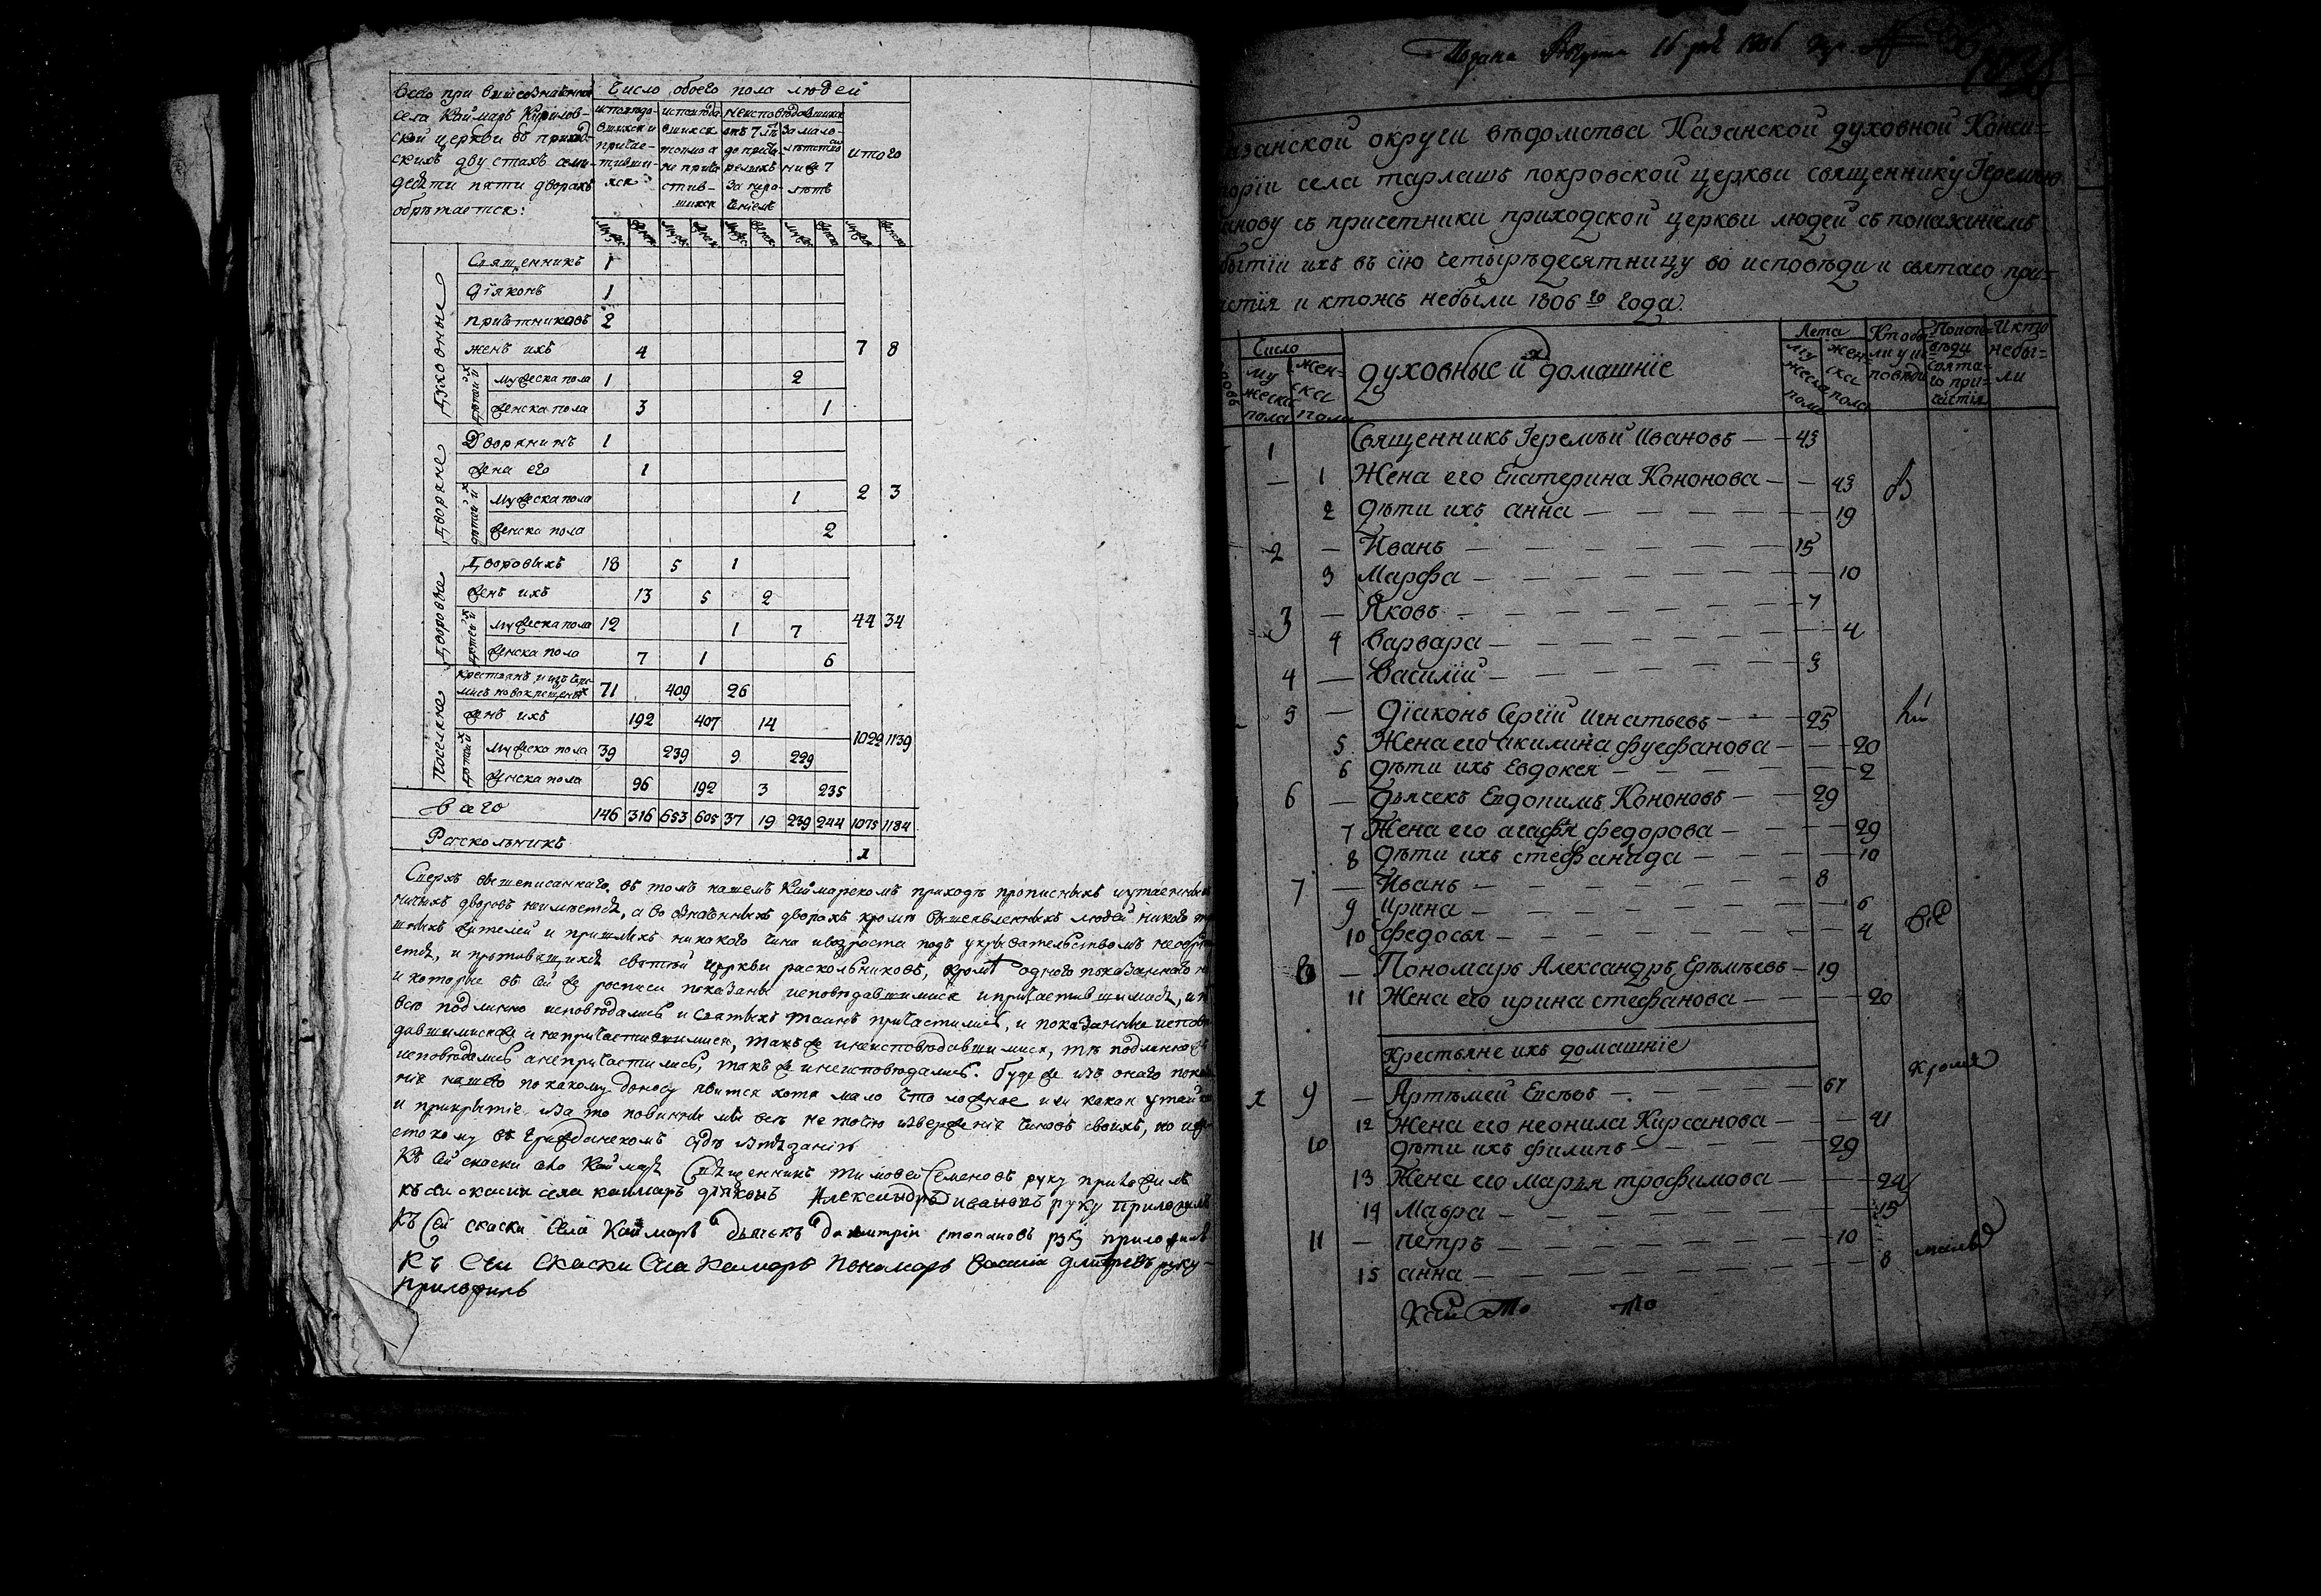 всего при вышеозначенной
села Каймаръ Кирилов-
ской церкви въ приход-
скихъ двустахъ семи-
десяти пяти дворахъ
обрѣтается:
Число обоего пола людей
исповѣдо-
вшихся и
причас-
тивши-
хся
исповѣдо
вшихся
токмо а
не прича
стив-
шихся
неисповѣдовшихся
отъ 7 лѣ
за мало-
лѣтство
ниже 7
лѣтъ
итого
Муж: женск: Муж: женск: Муж: женск: Муж: женск: Муж: женск:
Духовные
Священникъ 1
Дїяконъ 1
причѣтниковъ 2
женъ ихъ 4 7 8
дѣтей ихъ
мужеска пола 1 2
женска пола 3 1
Дворяне
Дворянинъ 1
жена его 1
дѣтей ихъ 2 3
мужеска пола 1
женска пола 2
Дворовые
Дворовыхъ 18 5 1
женъ ихъ 13 5 2
дѣтей ихъ 44 34
мужеска пола 12 1 7
женска пола 7 1 6
Поселяне
крестьянъ и изъ чере-
мисъ новокрещеныхъ 71 409 26
женъ ихъ 192 407 14
1029 1139
дѣтей ихъ
мужеска пола 39 239 9 229
женска пола 96 192 3 235
Всего 146 316 653 605 37 19 239 244 1075 1184
Раскольникъ 1
Сверхъ вышеписаннаго въ томъ нашемъ Каймарскомъ приходѣ прописныхъ и утаенныхъ
дворовъ неимѣется, а во означенныхъ дворахъ кромѣ вышеявленныхъ людей никого
жителей и пришлыхъ никакого чина и возраста подъ укрывательствомъ
и противящихся святѣй церкви раскольниковъ, кромѣ одного показаннаго
и которые въ сей же росписи показаны исповѣдавшимися и причастившимися,
подлинно исповѣдались и святыхъ таинъ причастились, и показанные
и непричастившимися, такъ же и неисповѣдавшимися, тѣ подлинно
исповѣдались а непричастились, такъ же и неисповѣдались. буде же изъ онаго
нашего по какому доносу явится хотя мало что ложное или какая
и прикрытіе за то повинны мы не точїю изверженія чиновъ своихъ, но и
въ гражданскомъ судѣ
Къ сей скаски села Каймаръ Священникъ Тимофей Семеновъ руку приложилъ
къ сей скаски села каймаръ дїяконъ Александръ ивановъ руку приложилъ
Къ сей скаски села Каймаръ дьячекъ димитрїи степановъ руку приложилъ
Къ сеи скаски села Каймаръ пономарь Василїи дмитревъ руку
приложилъ
Подана Августа 16 1806
казанской округи вѣдомства Казанской духовной Конси=
торїи села тарлашъ покровской церкви священнику Геремѣю
Иванову съ причетники приходской церкви людей съ показанїемъ
бытїи ихъ въ сїю четыредесятницу во исповѣди и святаго при=
частїя и ктожъ небыли 1806 го года.
Число
му
жеска
пола
жен-
ска
пола
духовные и ихъ домашнїе
Лета
му
жеска
пола
жен-
ска
пола
Кто бы-
ли у ис-
повѣди
По испо-
вѣди
свята-
го при-
частїя
И кто
небы-
ли
1 Священникъ Геремѣй Ивановъ 43
1 Жена его Екатерина Кононова 43
2 Дѣти ихъ анна 19
2 Иванъ 15
3 Марфа 10
3 Яковъ 7
4 Варвара 4
4 Василїй 3
5 Дїаконъ Сергїй игнатьевъ 25
5 Жена его акилина фуефанова 20
6 Дѣти ихъ Евдокея 2
6 Дьячекъ Евдокимъ Кононовъ 29
7 Жена его агафья федорова 29
8 Дѣти ихъ стефанида 10
7 Иванъ 8
9 Ирина 6
10 Федосья 4
8 Пономарь Александръ Еремѣевъ 19
11 Жена его ирина стефанова 20
Крестьяне ихъ домашнїе
кромѣ
1 9 Артѣмей Евсѣвъ 67
12 Жена его неонила Кирсанова 41
10 Дѣти ихъ филипъ 29
13 Жена его марья трофимова 24
14 Мавра 15
11 петръ 10
15 анна 8